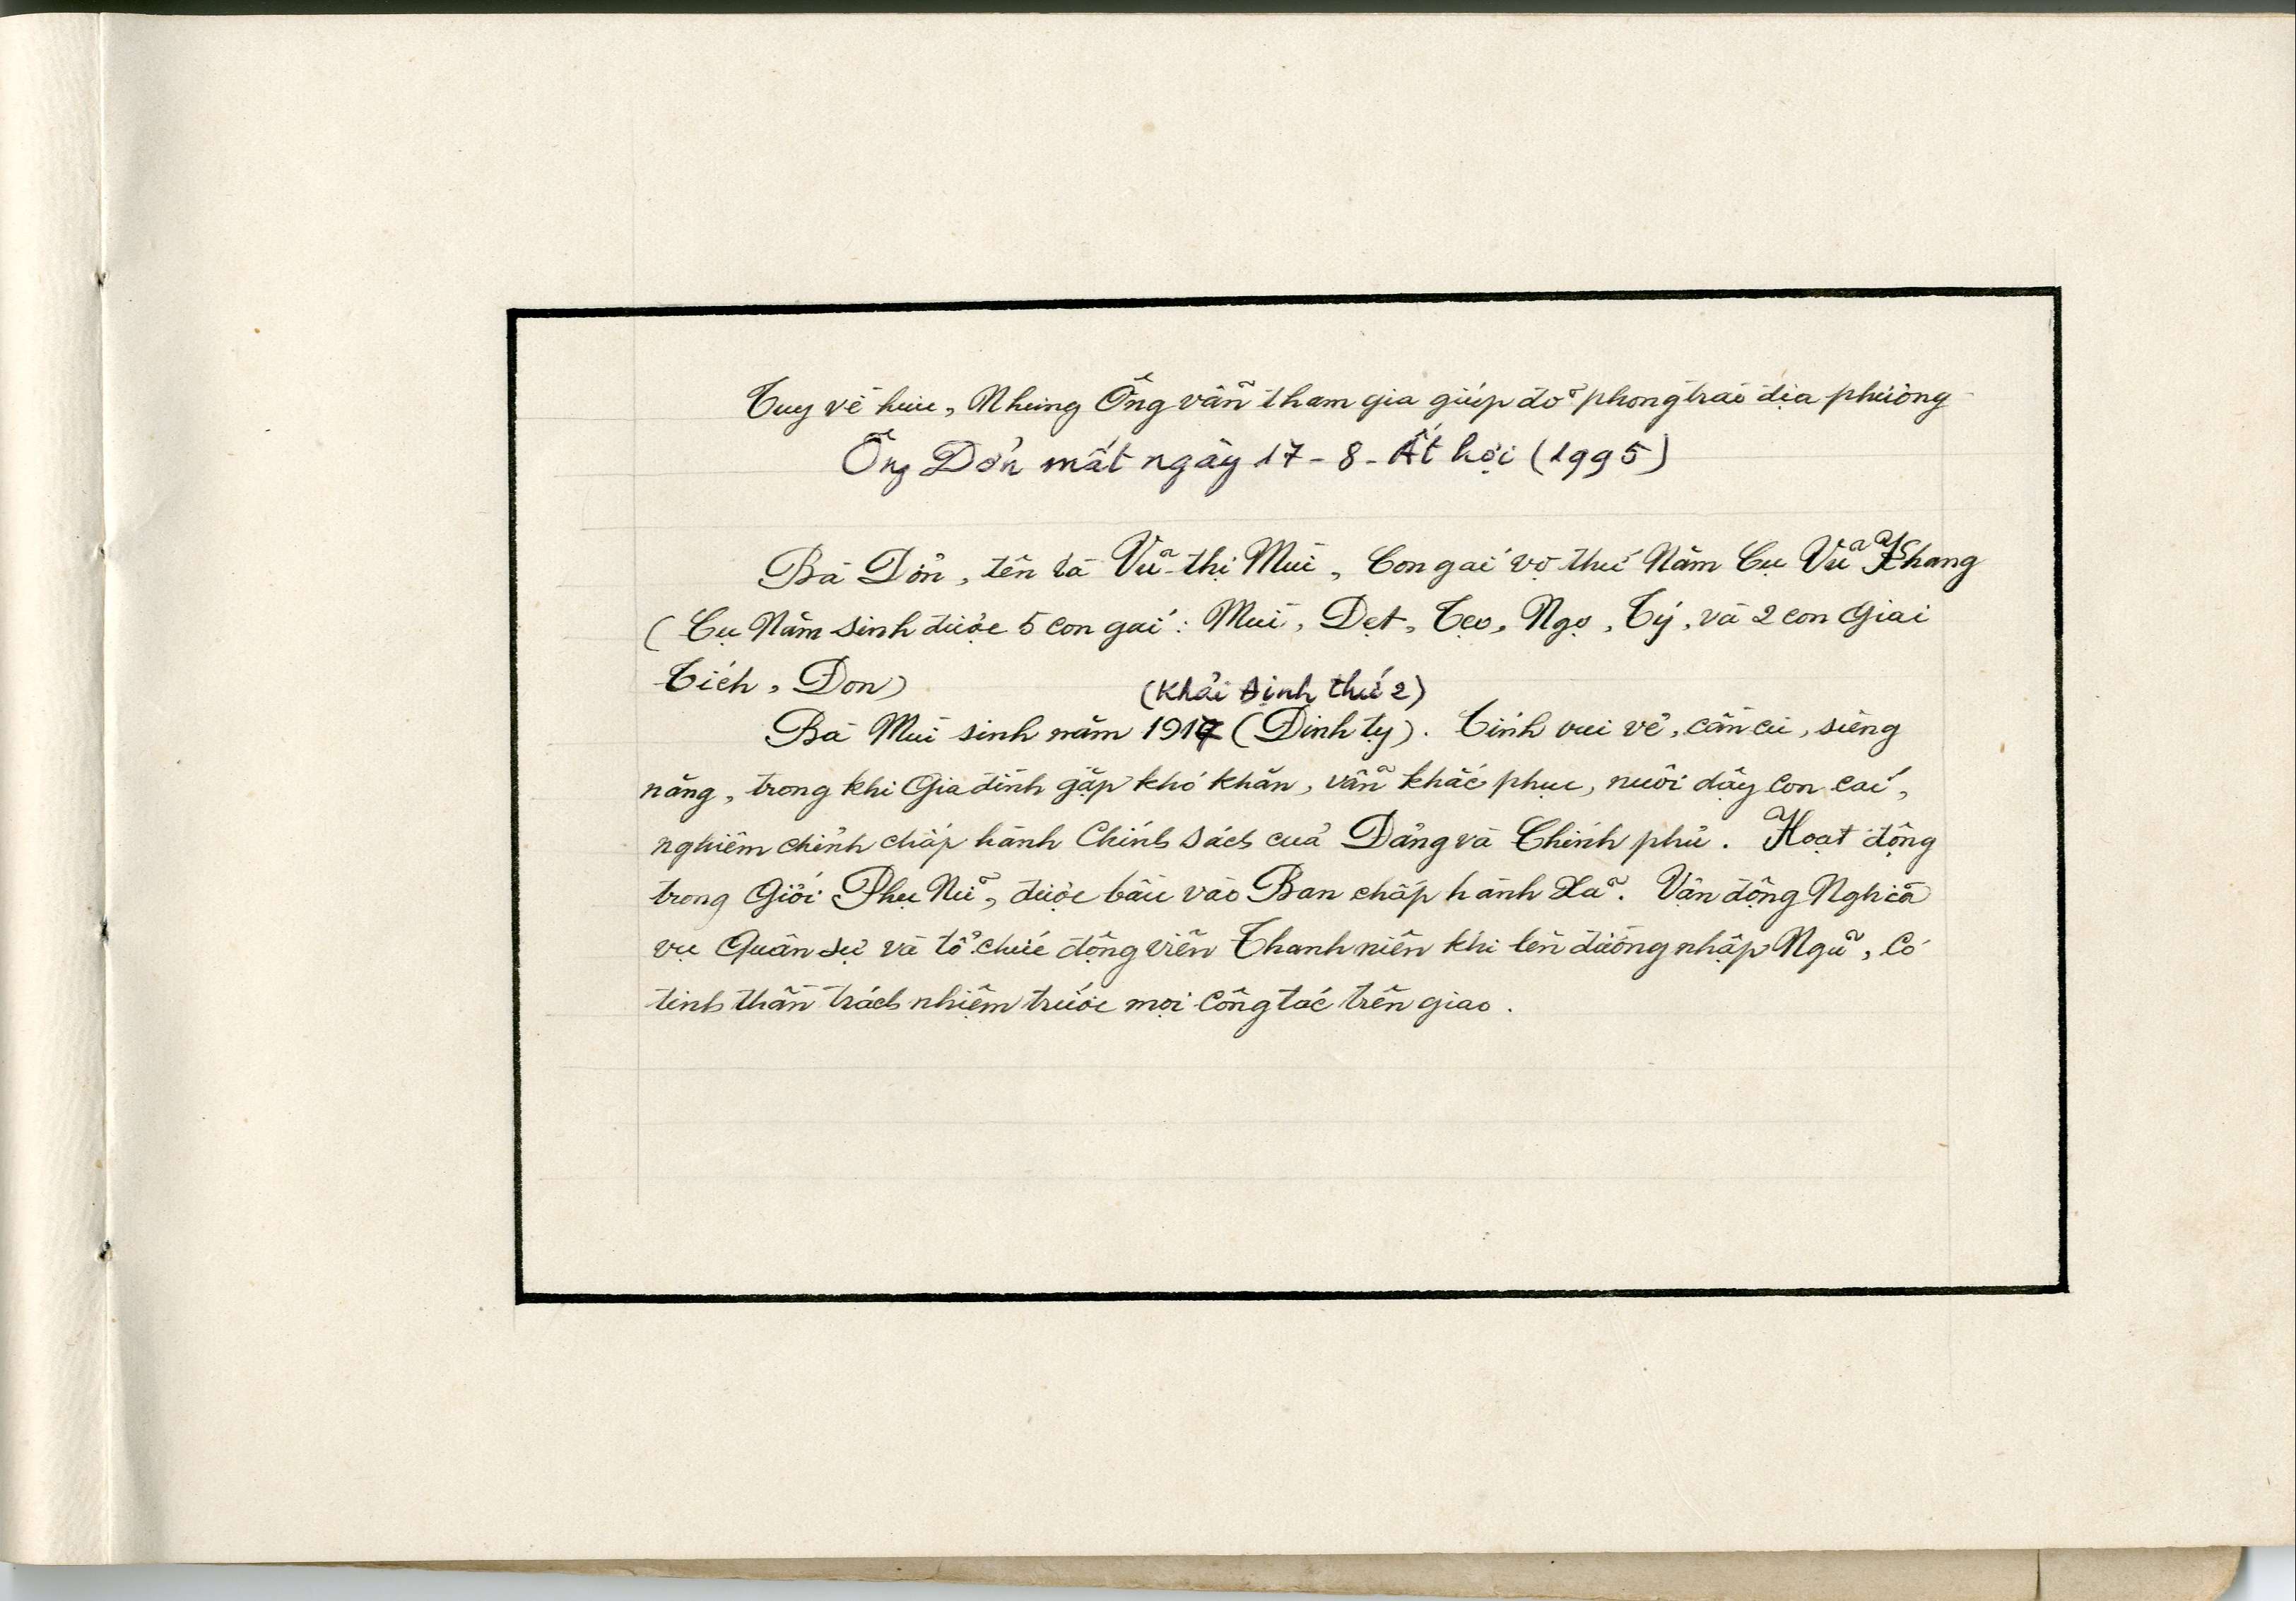 Tuy về hưu, Nhưng Ông vẫn tham gia giúp đỡ phong trào địa phương
Ông Dỡn mất ngày 17-8-Ất hợi (1995)
Bà Dỡn, tên là Vũ-thị Mùi, Con gái vợ thứ Năm Cụ Vũ Khang
(Cụ Năm sinh được 5 con gái: Mùi, Dẹt, Tẹo, Ngọ, Tý, và 2 con Giai
Tích, Đon)
(Khải Định thứ 2)
Bà Mùi sinh năm 1917 (Đinh tỵ). Tính vui vẻ, cần cù, siêng
năng, trong khi Gia đình gặp khó khăn, vẫn khắc phục, nuôi dậy con cái,
nghiêm chỉnh chấp hành Chính sách của Đảng và Chính phủ. Hoạt động
trong Giới Phụ Nữ, được bầu vào Ban chấp hành Xã. Vận động Nghĩa
vụ Quân sự và tổ chức động viên Thanh niên khi lên đường nhập Ngũ, Có
tinh thần trách nhiệm trước mọi Công tác trên giao.